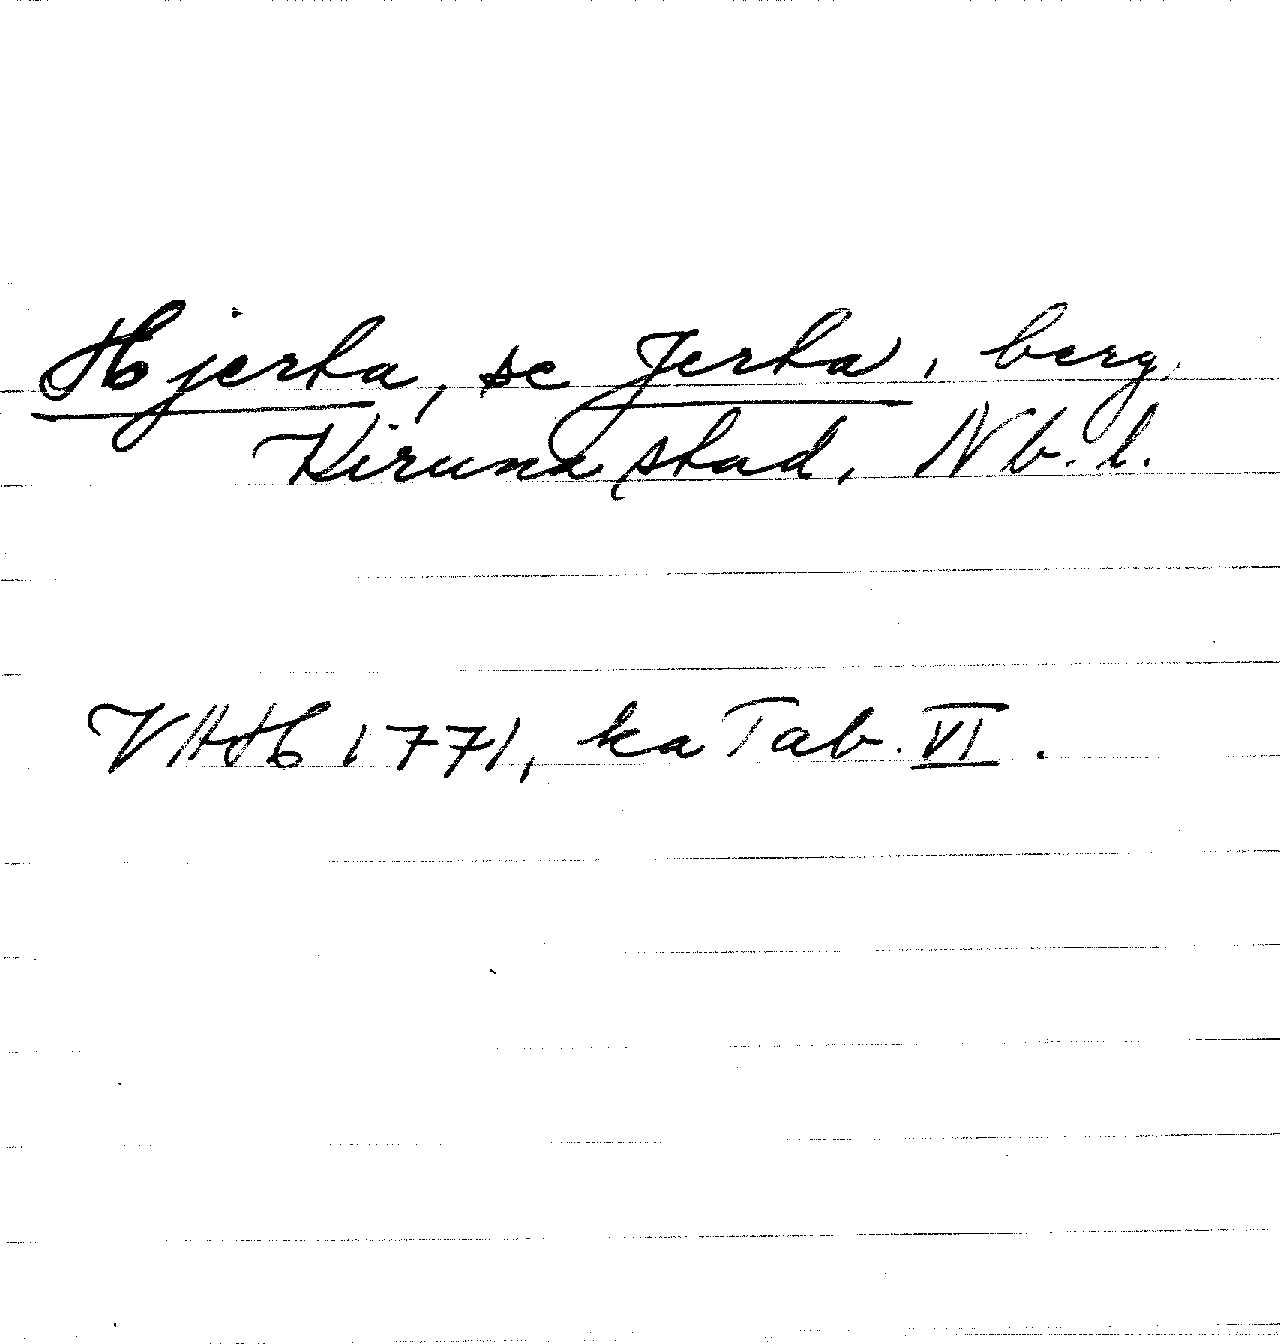 Hjerta, se Jerta, berg,
Kiruna stad, Nb. l.
VAH 1771, ka Tab. VI.